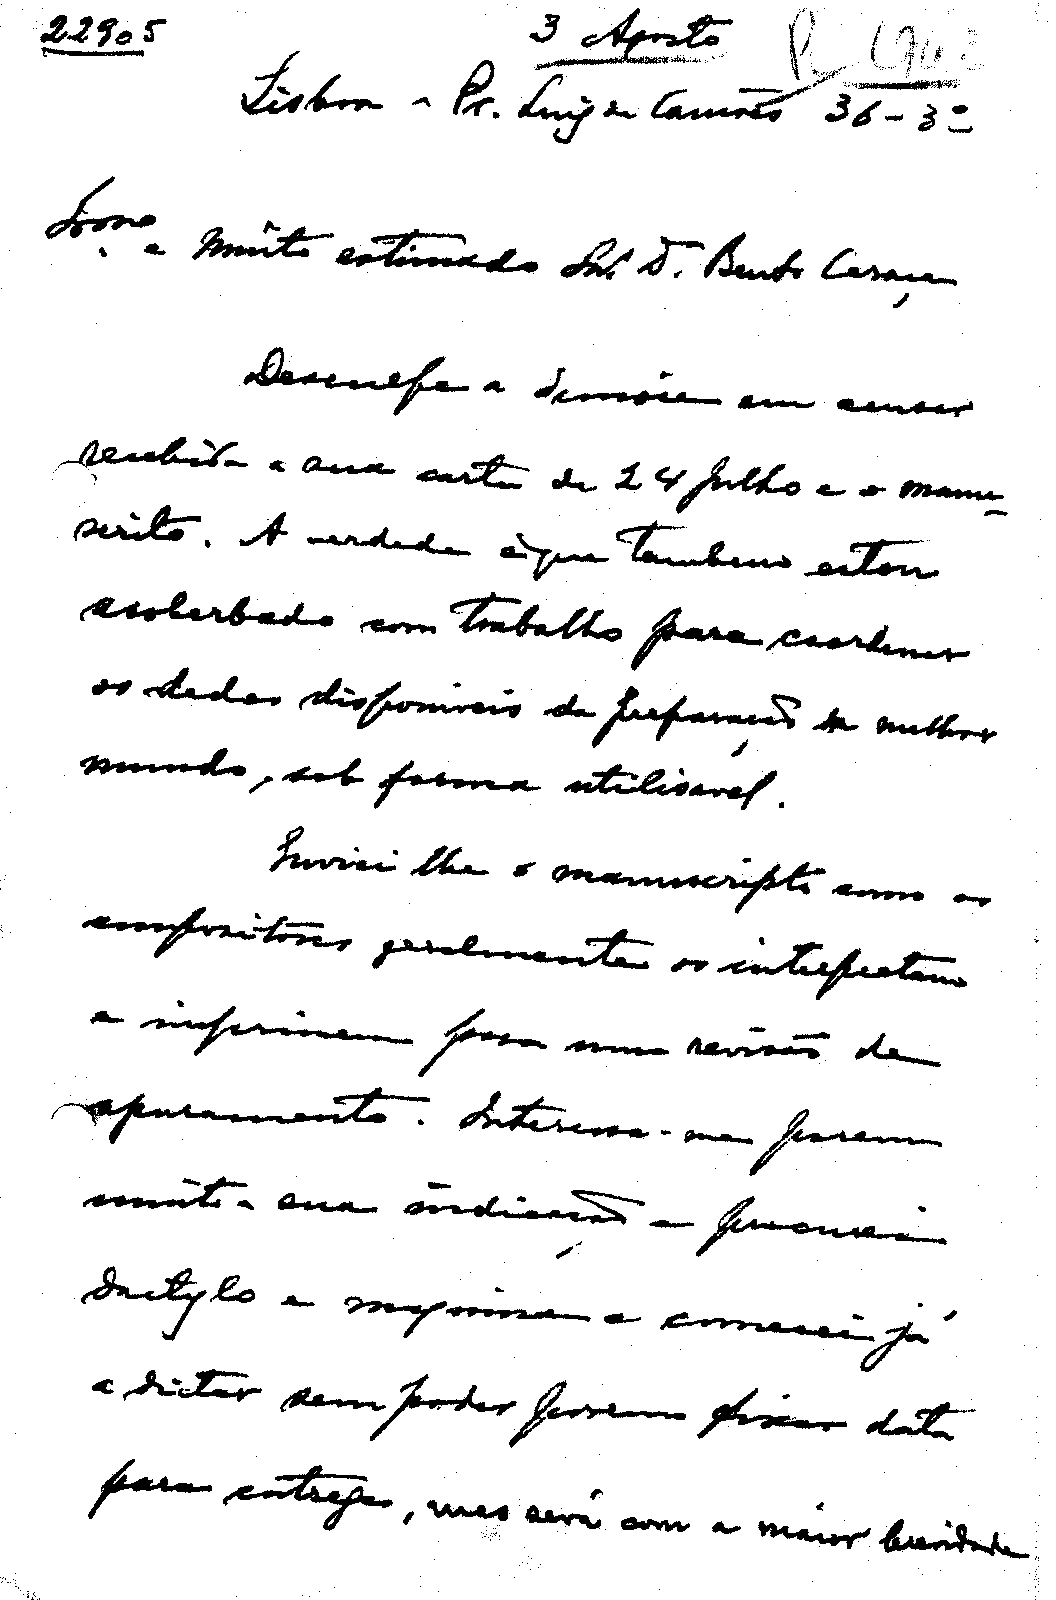 22905
3 Agosto
Lisboa - Pr. Luiz de Camões 36-3º
Exmo. e Muito estimado Snr. D. Bento Caraça
Desculpe a demóra em acusar
recebida a sua carta de 24 Julho e o manu-
scrito. A verdade é que tambem estou
asoberbado com trabalho para coordenar
os dados disponiveis da preparação dum melhor
mundo, sob forma utilisavel.
Enviei lhe o manuscripto como os
compositores geralmente os interpretam
e imprimem para uma revisão de
apuramento. Interessa-me porem
muito a sua indicação e procurei
dactylo e maquina e comecei já
a dictar sem poder porem fixar data
para entrega, mas será com a maior brevidade